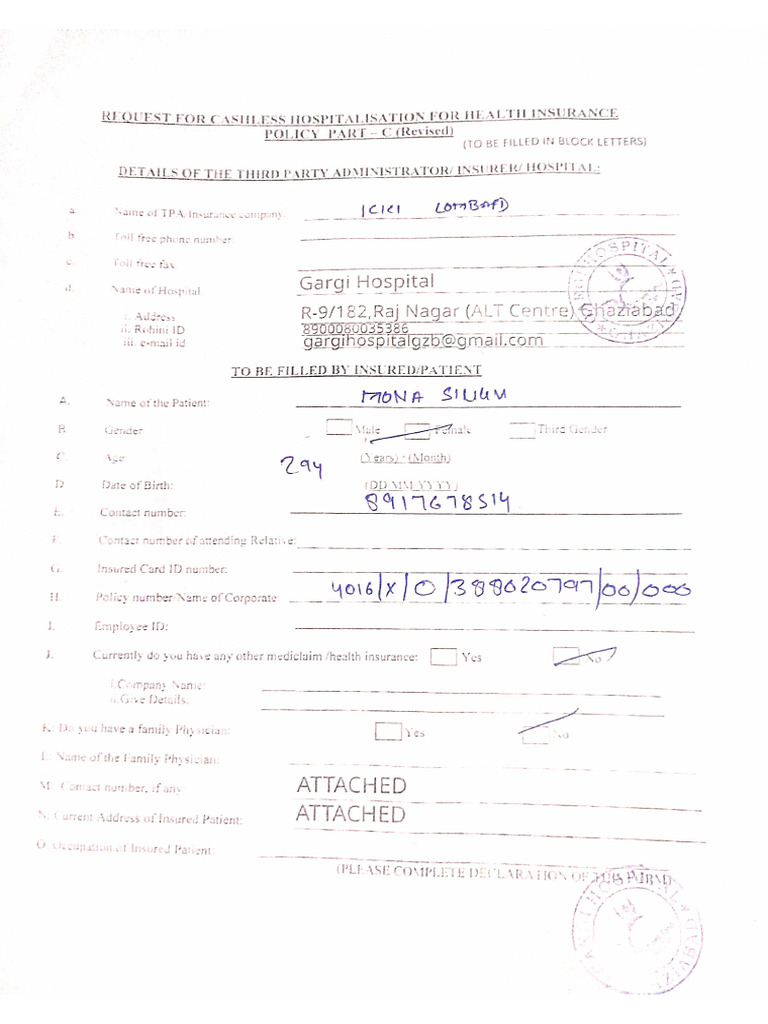 REQUEST FOR CASHLESS HOSPITALISATION FOR HEALTH INSURANCE
POLICY PART – C (Revised)
(TO BE FILLED IN BLOCK LETTERS)
DETAILS OF THE THIRD PARTY ADMINISTRATOR/ INSURER/ HOSPITAL:
a. Name of TPA Insurance company: ICICI LOMBARD
b. Toll free phone number:
c. Toll free fax
d. Name of Hospital Gargi Hospital
i. Address R-9/182,Raj Nagar (ALT Centre) Ghaziabad
ii. Rohini ID 8900080035386
iii. e-mail id gargihospitalgzb@gmail.com
TO BE FILLED BY INSURED/PATIENT
A. Name of the Patient: MONA
B. Gender Male Female Third Gender
C. Age: 29y (Years) - (Month)
D. Date of Birth: (DD MM YYYY)
E. Contact number: 8917678514
F. Contact number of attending Relative:
G. Insured Card ID number:
H. Policy number/Name of Corporate 4016/X/O/388020797/00/000
I. Employee ID:
J. Currently do you have any other mediclaim /health insurance: Yes No
i.Company Name:
ii.Give Details:
K. Do you have a family Physician: Yes No
L. Name of the Family Physician:
M. Contact number, if any: ATTACHED
N. Current Address of Insured Patient: ATTACHED
O. Occupation of Insured Patient:
(PLEASE COMPLETE DECLARATION OF THIS FORM)